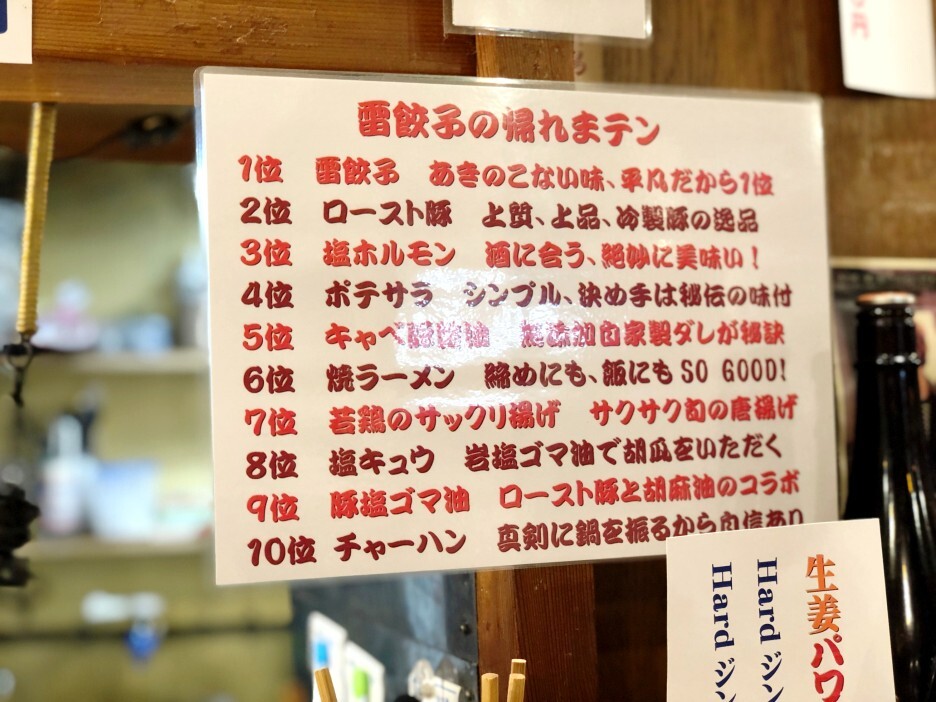 雷餃子の帰れまテン
1位 雷餃子 あきのこない味、平凡だから1位
2位 ロースト豚 上質、上品、冷製豚の逸品
3位 塩ホルモン 酒に合う、絶妙に美味い！
4位 ポテサラ シンプル、決め手は秘伝の味付
5位 キャベ 自家製ダレが秘訣
6位 焼ラーメン 締めにも、飯にも SO GOOD!
7位 若鶏のサックリ揚げ サクサク旬の唐揚げ
8位 塩キュウ 岩塩ゴマ油で胡瓜をいただく
9位 豚塩ゴマ油 ロースト豚と胡麻油のコラボ
10位 チャーハン 真剣に鍋を振るから自信あり
生姜パワ
Hard ジン
Hard ジン
円